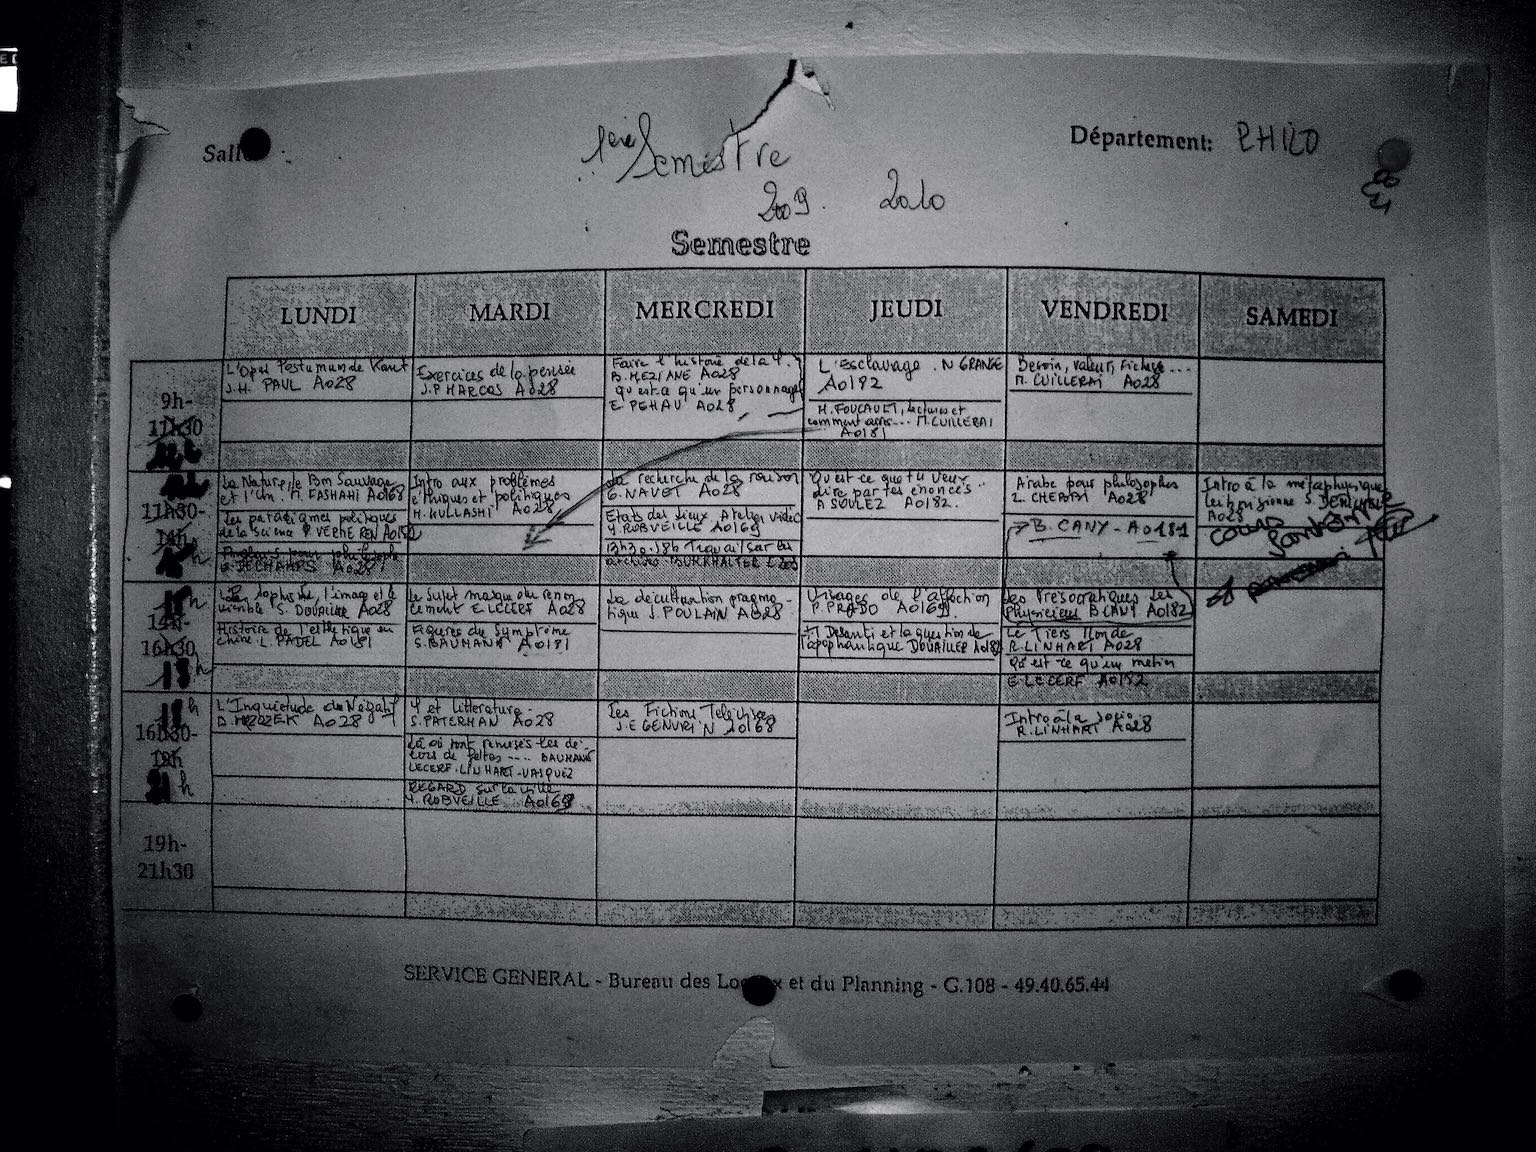 Salle
1ère Semestre
Département: PHILO
2009. 2010
Semestre
LUNDI
MARDI
MERCREDI
JEUDI
VENDREDI
SAMEDI
9h-
11h30
L'Opus Postumum de Kant
J.H. PAUL A028
Exercices de la pensée
J.P MARCOS A028
Faire l'histoire de la
B. MEZIANE A028
qu'est ce qu'un personnage
E. PEHAU A028
L'Esclavage. N GRANGE
A0182
M. FOUCAULT, lectures et
commentaires... M. CUILLERAI
A0181
Besoin, valeur, Fichus...
M. CUILLERAI A028
11h30-
14h
h
La Nature, le Bon Sauvage
et l'un. M. FASHAHI A0168
les paradigmes politiques
de la science P. VERHEREN A0181
Anglais pour philosophe
DECHAMPS A028
Intro aux problèmes
éthiques et politiques
M. KULLASHI A028
La recherche de la raison
G. NAVET A028
Etats des lieux Atelier vidéo
Y. ROBVEILLE A0169
13h30.18h Travail sur les
archives BURKHALTER
Qu'est ce que tu veux
dire par tes énoncés..
A SOULEZ A0182.
Arabe pour philosophes
Z. CHERABI A028
B. CANY - A0181
Intro à la métaphysique
A028
cours
15h
14h-
16h30
18h
sophisme, l'image et le
S. DOUAILLER A028
Histoire de l'esthétique en
Chine L. PADEL A0181
Le sujet masque ou renon
cement E. LECERF A028
Figures du symptôme
S. BAUMANN A0181
La déconstruction pragma-
tique J. POULAIN A028
Usages de l'affection
P. PRADO A0169
JT Desanti et la question de
l'apophantique DOUAILLER A0182
Les Présocratiques Les
Physiciens B. CANY A0182
Le Tiers Monde
R. LINHART A028
Qu'est ce qu'un métier
E. LECERF A0182
18h
16h30-
19h
21h
L'Inquiétude du Négatif
D. MROZEK A028
et littérature.
S. PATERMAN A028
Là où sont remisés les dé-
cors de fêtes .... BAUMANN
LECERF-LINHART-VASQUEZ
REGARD sur la ville
Y. ROBVEILLE A0169
Les Fictions Télévisées
J.E GENURIN A0168
Intro à la socio
R. LINHART A028
19h-
21h30
SERVICE GENERAL - Bureau des Locaux et du Planning - G.108 - 49.40.65.44